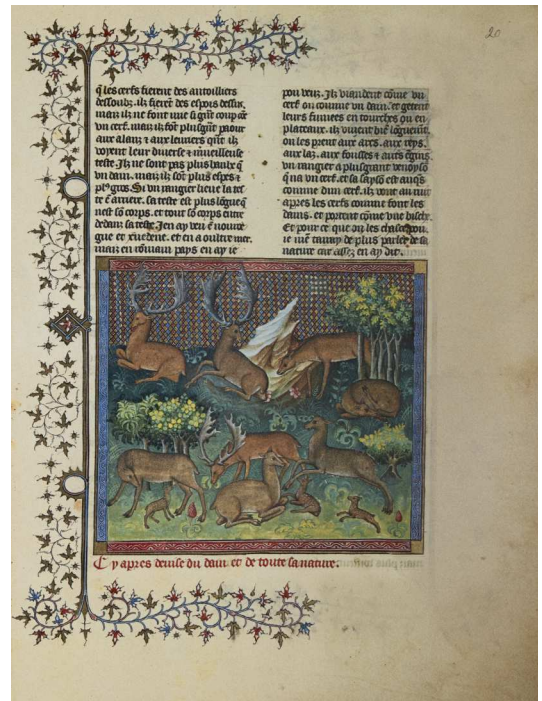 20
q̃ les cerfs fierent des antoilliers
dessoubz. ilz fierẽt des espois dessus,
mais ilz ne font mie si grãt coup cõe
vn cerf. mais ilz fõt plus grãt paour
aux alans et aux leuriers quãt ilz
voyent leur diuerse et merueilleuse
teste. Ilz ne sont pas plus haulx q̃
vn daim. mais ilz sõt plus espes et
plꝰ gros. Si vn rangier lieue la tes
te ẽ arriere. sa teste est plus lõgue q̃
nest sõ corps. et tout sõ corps entre
dedans sa teste. Jen ay veu ẽ nouue
gue et xuedene. et en a oultre mer.
mais en rõmain pays en ay ie
pou veuz. Ilz viandent cõme vn
cerf ou comme vn daim. et getent
leurs fumees en tourches ou en
plateaux. ilz viuent biẽ lõguemẽt.
on les prent aux arcs. aux roys.
aux laz. aux fousses et autres engins.
vn rangier a plus grant venoysõ
q̃ na vn cerf. et sa saysõ est auxi
comme dun cerf. ilz vont au ruit
apres les cerfs comme font les
daims. et portent cõme vne bische.
Et pour ce que on les chasse pou,
ie nẽ vueil de plus parler de sa
nature car assez en ay dit.
Cy apres deuise du daim et de toute sa nature.